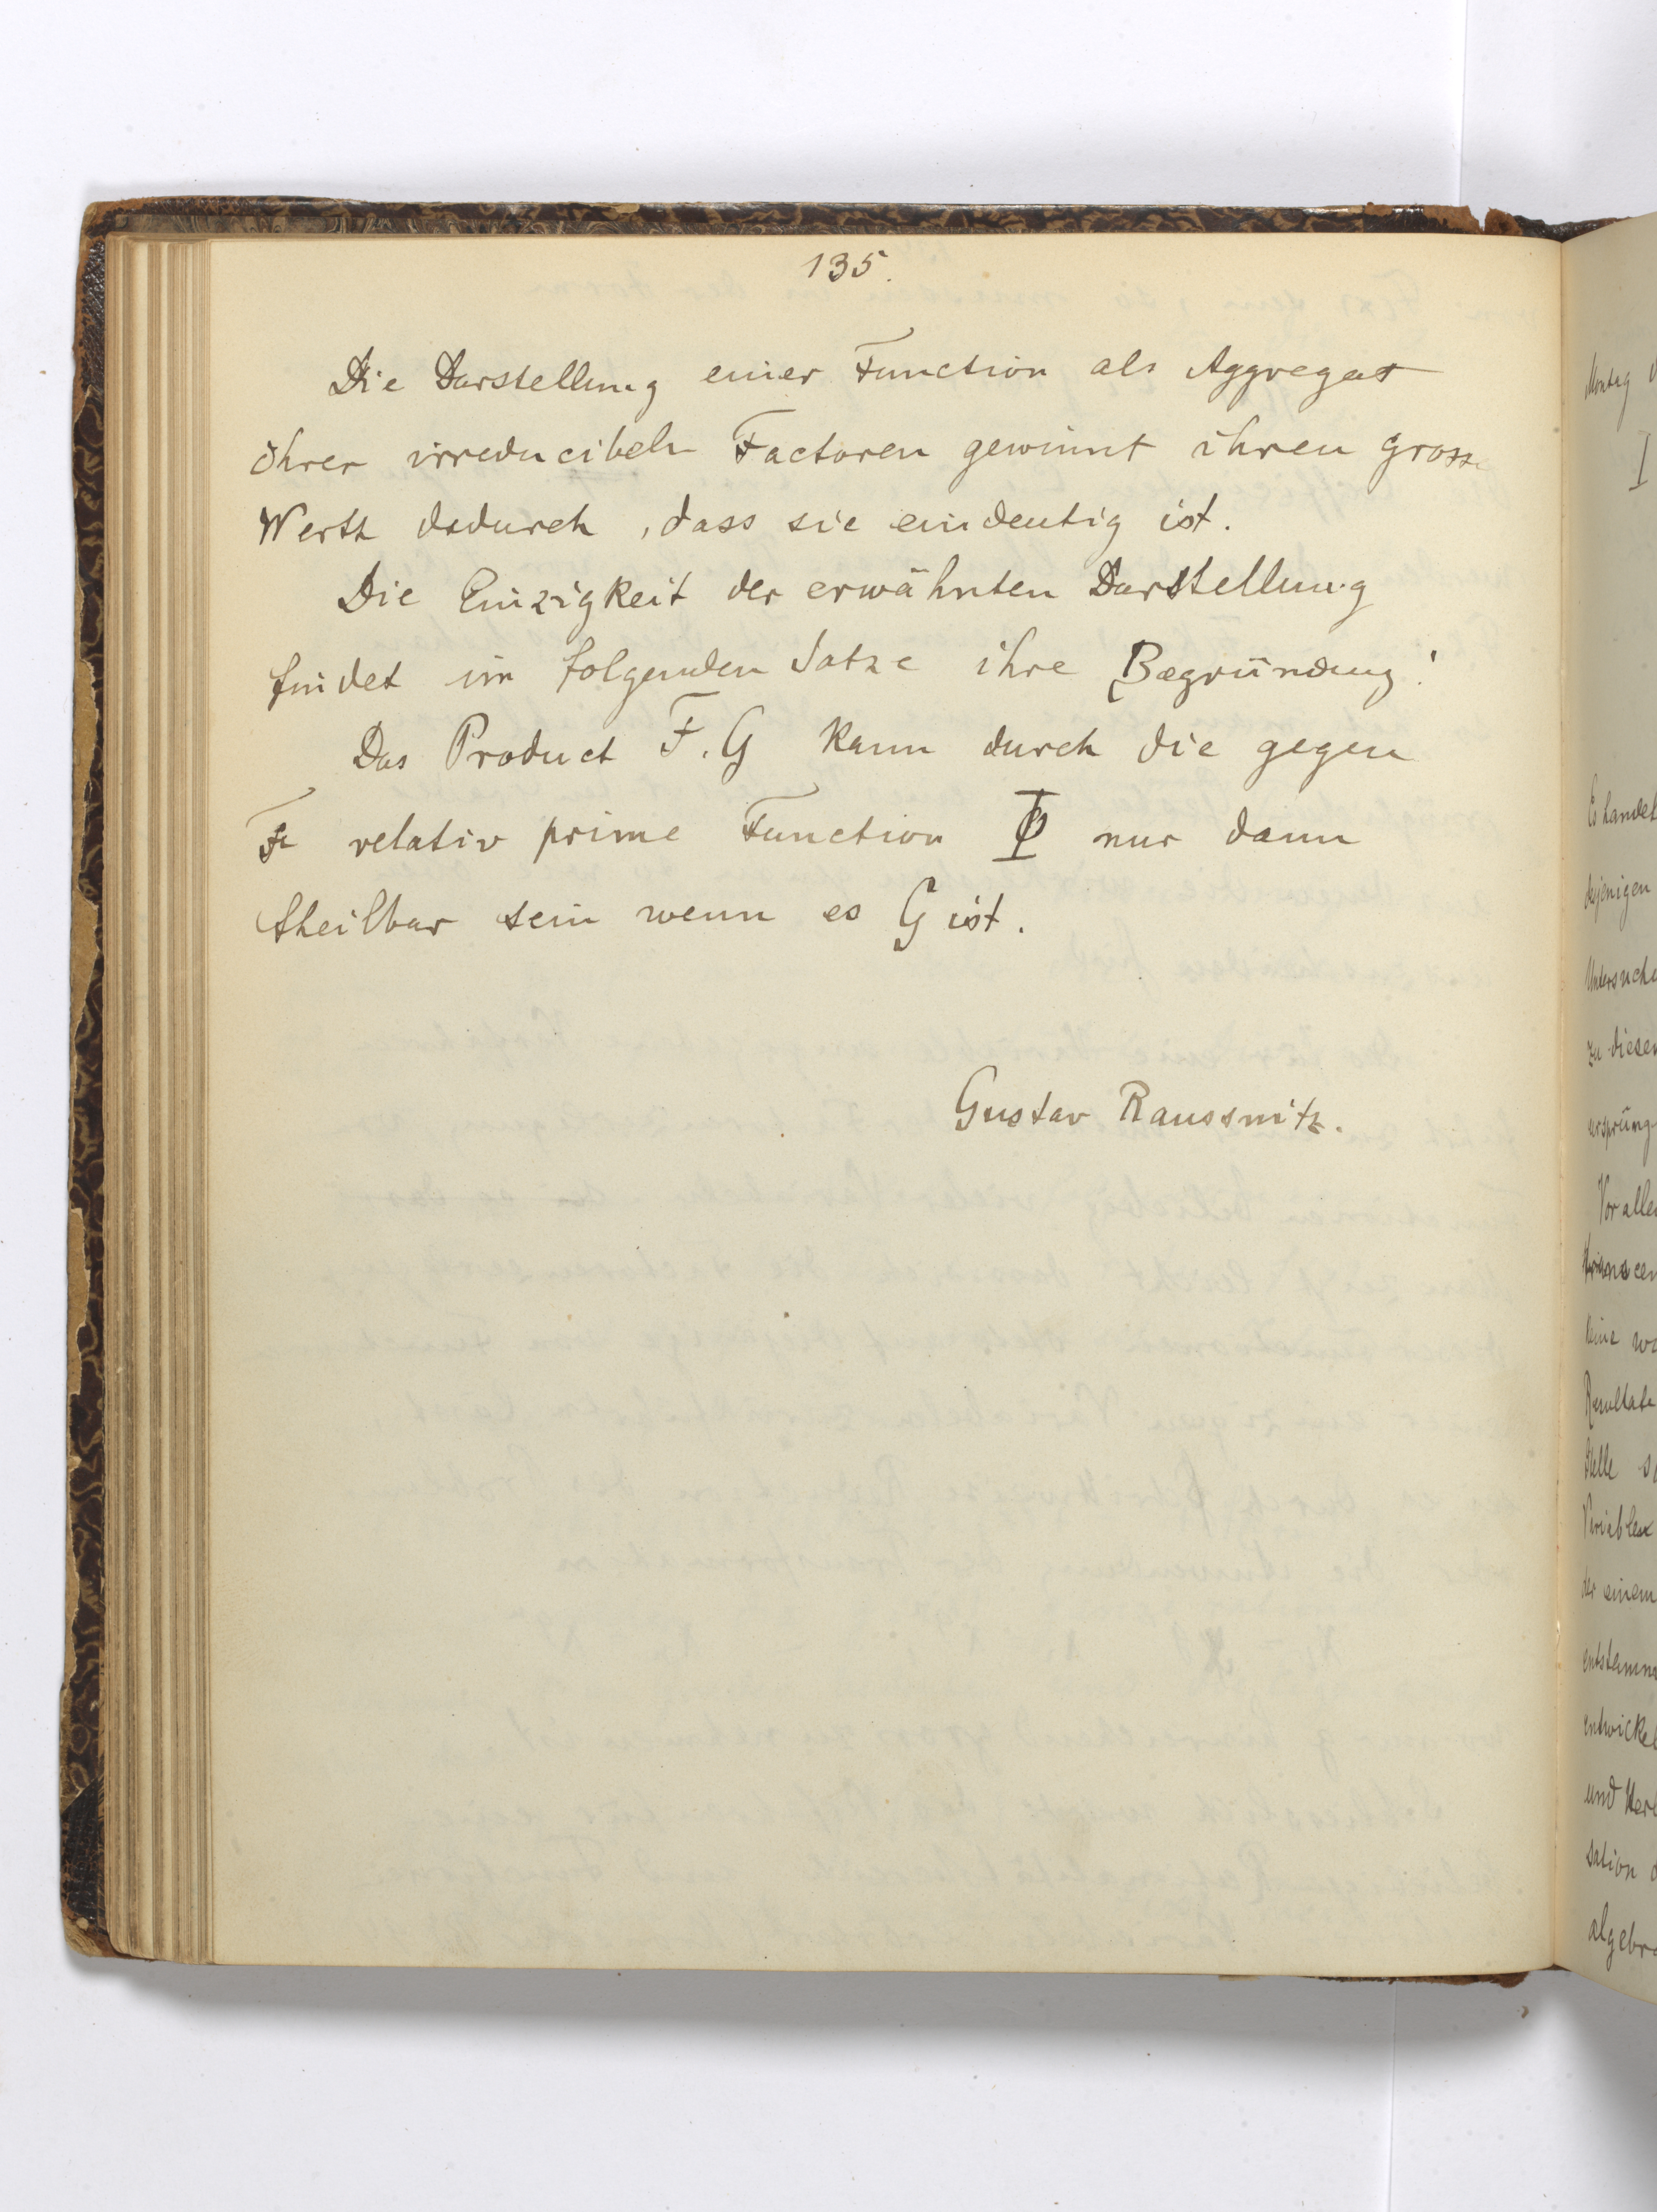 135.
Die Darstellung einer Function als Aggregat
ihrer irreducibeln Factoren gewinnt ihren grosse
Werth dadurch, dass sie eindeutig ist.
Die Einzigkeit der erwähnten Darstellung
findet im folgenden Satze ihre Begründung:
Das Product F. G kann durch die gegen
F relativ prime Function Φ nur dann
theilbar sein wenn es G ist.
Gustav Raussnitz.
Montag
I
Es handel
desjenigen
Untersuch
zu diesen
ursprüng
Vor alle
transcen
keine wa
Resultate
Stelle s
Variablen
der einem
entstamm
entwickel
und Her
sation
algebra